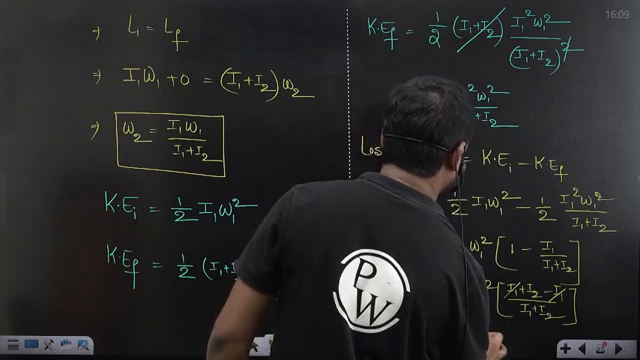 16:09
⇒ Li = Lf
⇒ I₁ω₁ + 0 = (I₁+I₂)ω₂
⇒ ω₂ = I₁ω₁ / (I₁+I₂)
K·Ei = 1/2 I₁ω₁²
K·Ef = 1/2 (I₁+I
K·Ef = 1/2 (I₁+I₂) I₁²ω₁² / (I₁+I₂)²
²ω₁² / +I₂
Los = K·Ei − K·Ef
1/2 I₁ω₁² − 1/2 I₁²ω₁² / (I₁+I₂)
ω₁² [1 − I₁ / (I₁+I₂)]
² [(I₁+I₂−I₁) / (I₁+I₂)]
P
W